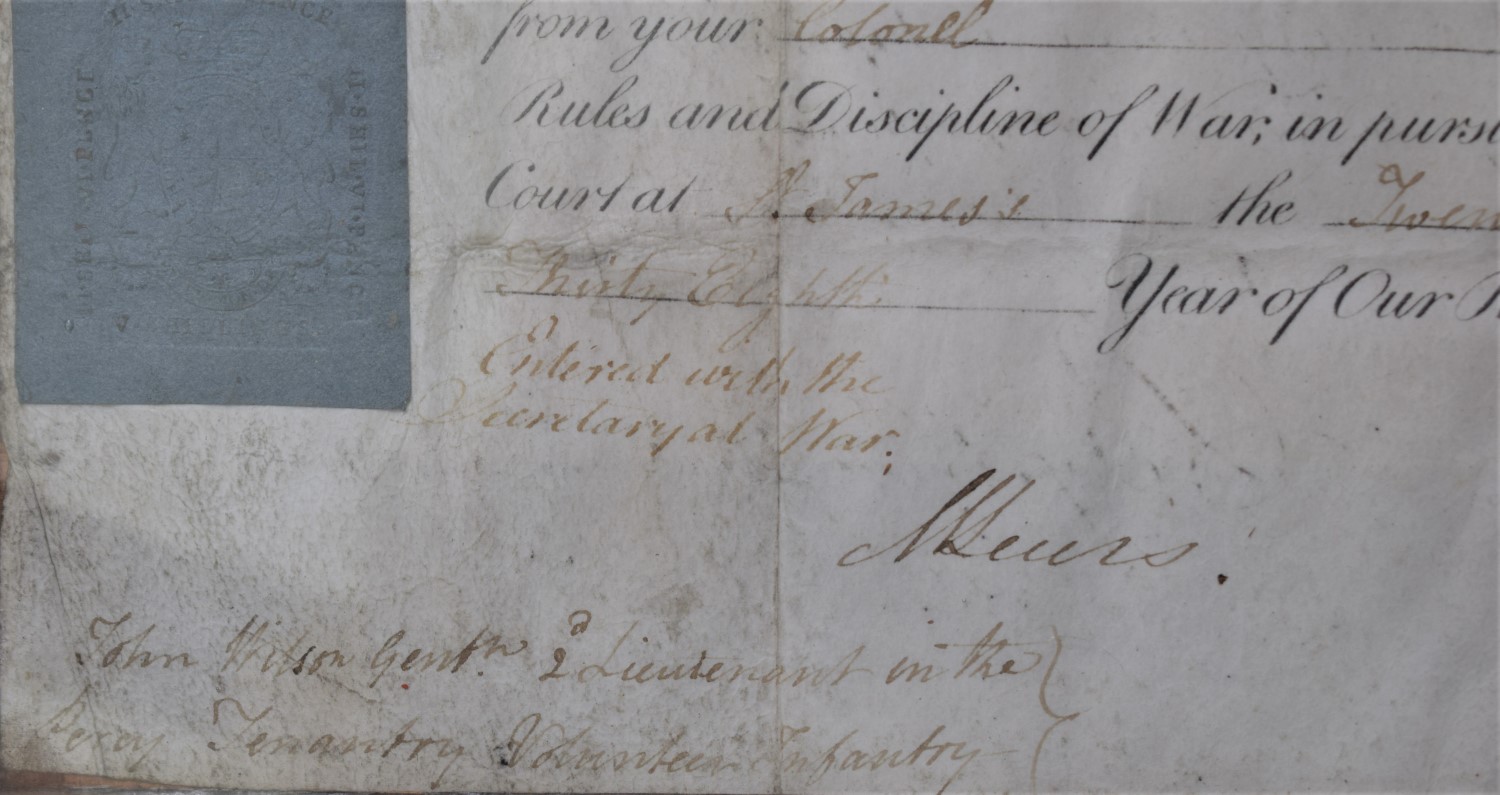 from your Colonel
Rules and Discipline of War; in
Court at St. James's the
Thirty Eighth Year of Our
Entered with the
Secretary at War;
John Wilson Gentn. 2d Lieutenant in the
Percy Tenantry Volunteer Infantry